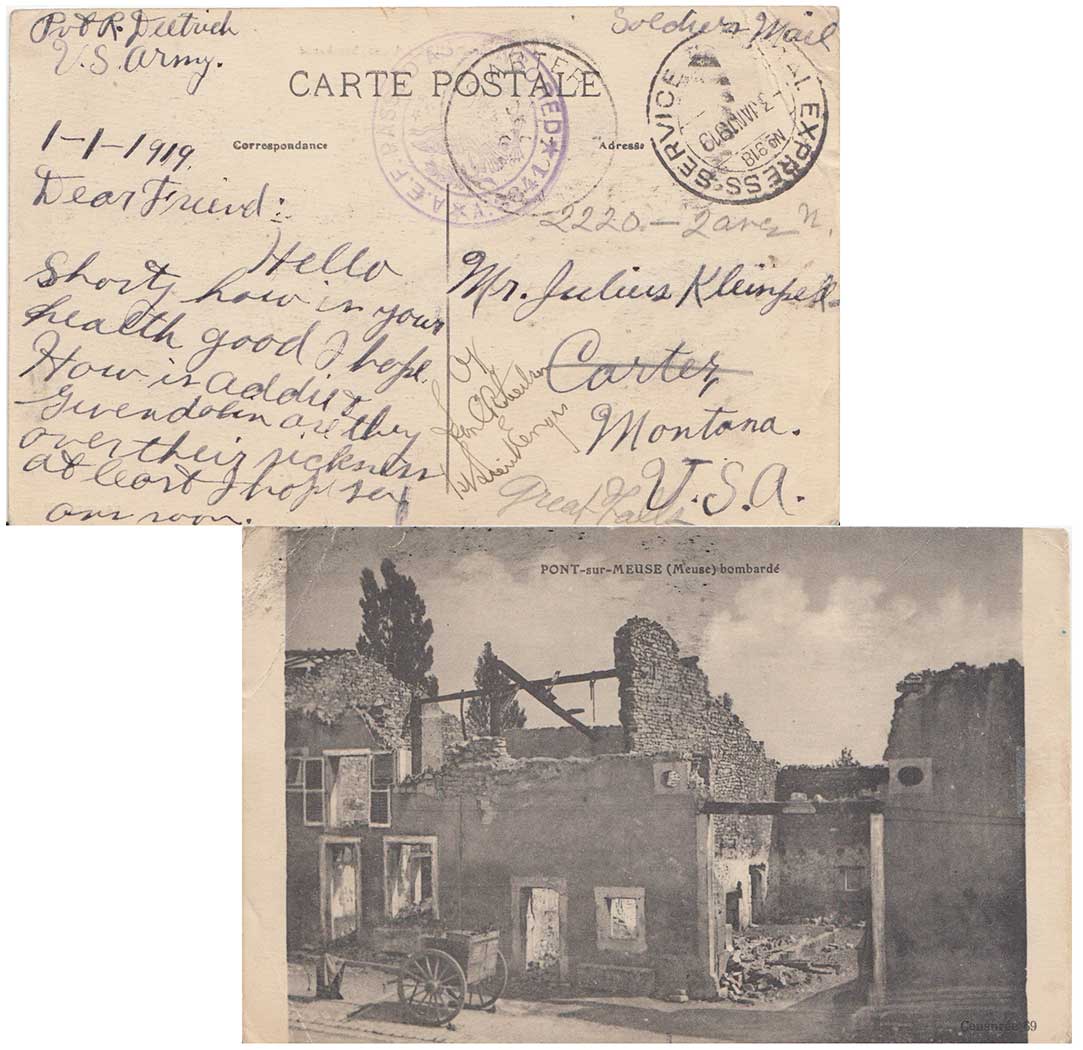 Pvt R. Dietrich
U.S. Army.
Soldiers Mail
CARTE POSTALE
Correspondance
Adresse
A.E.F. PASSED AS CENSORED ★ 1841
EXPRESS SERVICE
3 JAN 1919
No 918
1-1-1919.
Dear Friend:
Hello
Shorty how is your
health good I hope.
How is addie &
Gwendolin are they
over their sickness
at least I hope so
ans soon.
2220 - 2 ave N.
Mr. Julius Kleinpell
Carter,
Montana.
U.S.A.
Great Falls
PONT-sur-MEUSE (Meuse) bombardé
Censurée 69